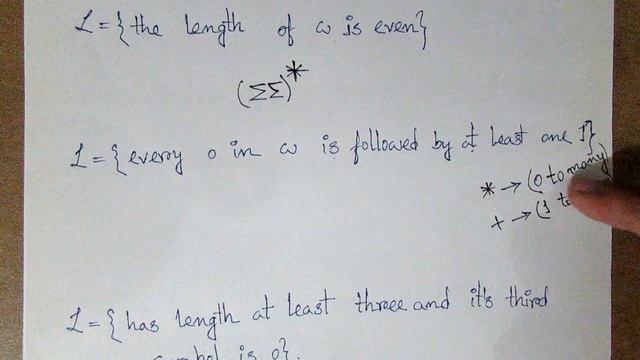 L = {the length of ω is even}
(ΣΣ)*
L = {every 0 in ω is followed by at least one 1}
* → (0 to many)
+ → (1 to
L = {has length at least three and it's third
symbol is 0}.